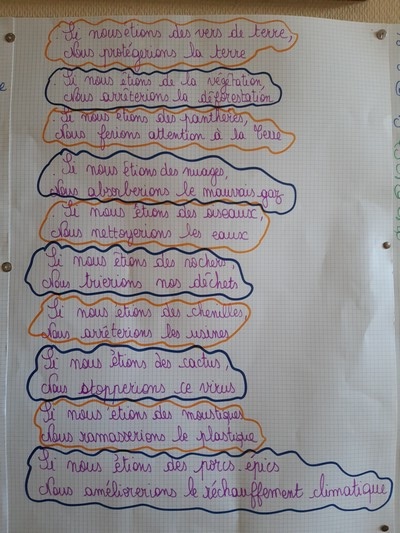 Si nous étions des vers de terre,
Nous protégerions la terre
Si nous étions de la végétation,
Nous arrêterions la déforestation
Si nous étions des panthères,
Nous ferions attention à la Terre
Si nous étions des nuages,
Nous absorberions le mauvais gaz
Si nous étions des oiseaux,
Nous nettoyerions les eaux
Si nous étions des rochers,
Nous trierions nos déchets
Si nous étions des chenilles,
Nous arrêterions les usines
Si nous étions des cactus,
Nous stopperions ce virus
Si nous étions des moustiques
Nous ramasserions le plastique
Si nous étions des porcs-épics
Nous améliorerions le réchauffement climatique